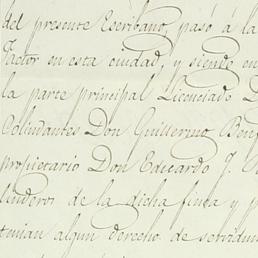 del presente Escribano, pasó á la
Factor en esta ciudad, y siendo en
la parte principal Licenciado D
Colindantes Don Guillermo
propietario Don Eduardo J.
linderos de la dicha finca y p
tenian algun derecho de servidum